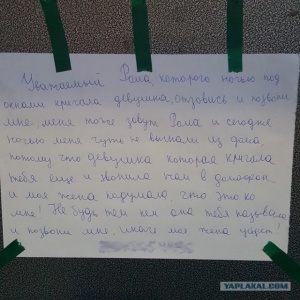 Уважаемый Рома которого ночью под
окнами кричала девушка, отзовись и позвони
мне, меня тоже зовут Рома и сегодня
ночью меня чуть не выгнали из дома
потому что девушка которая кричала
тебя еще и звонила нам в домофон
и моя жена подумала что это ко
мне! Не будь тем кем она тебя называла
и позвони мне иначе моя жена уйдет!
YAPLAKAL.COM